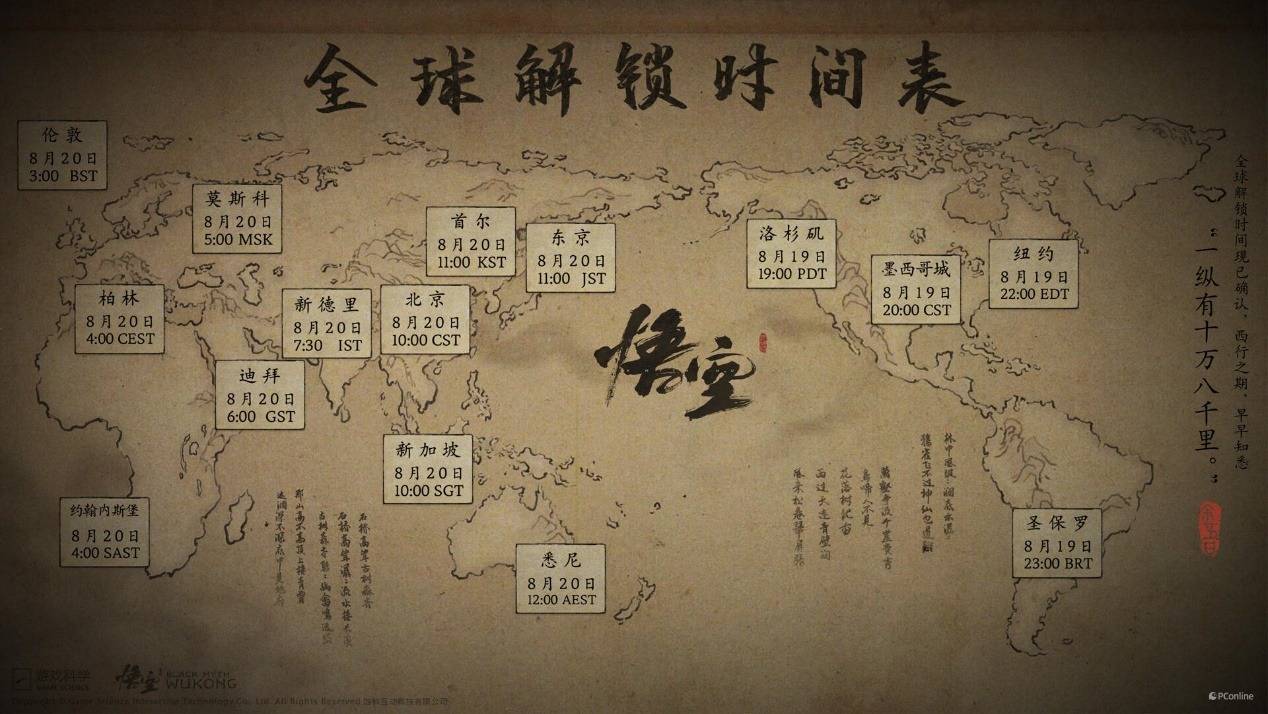 全球解锁时间表
伦敦
8月20日
3:00 BST
莫斯科
8月20日
5:00 MSK
首尔
8月20日
11:00 KST
东京
8月20日
11:00 JST
洛杉矶
8月19日
19:00 PDT
墨西哥城
8月19日
20:00 CST
纽约
8月19日
22:00 EDT
柏林
8月20日
4:00 CEST
新德里
8月20日
7:30 IST
北京
8月20日
10:00 CST
迪拜
8月20日
6:00 GST
新加坡
8月20日
10:00 SGT
约翰内斯堡
8月20日
4:00 SAST
悉尼
8月20日
12:00 AEST
圣保罗
8月19日
23:00 BRT
悟空
全球解锁时间现已确认，西行之期，早早知悉
“一纵有十万八千里。”
游戏科学
GAME SCIENCE
悟空
BLACK MYTH
WUKONG
PConline